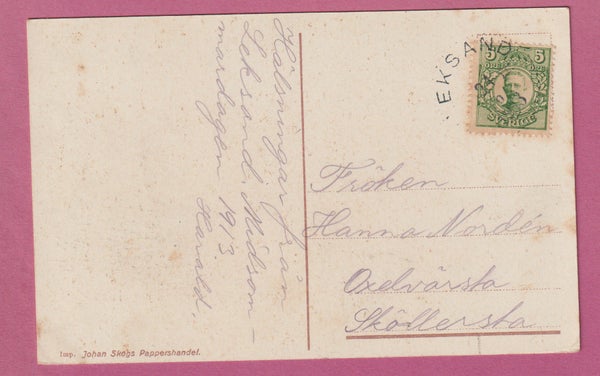 Hälsningar från
Leksand. Midsom-
mardagen 1913.
Harald.
EKSAND
24
5 5
SVERIGE
Fröken
Hanna Nordén
Oxelvärsta
Sköllersta
Imp. Johan Skogs Pappershandel.